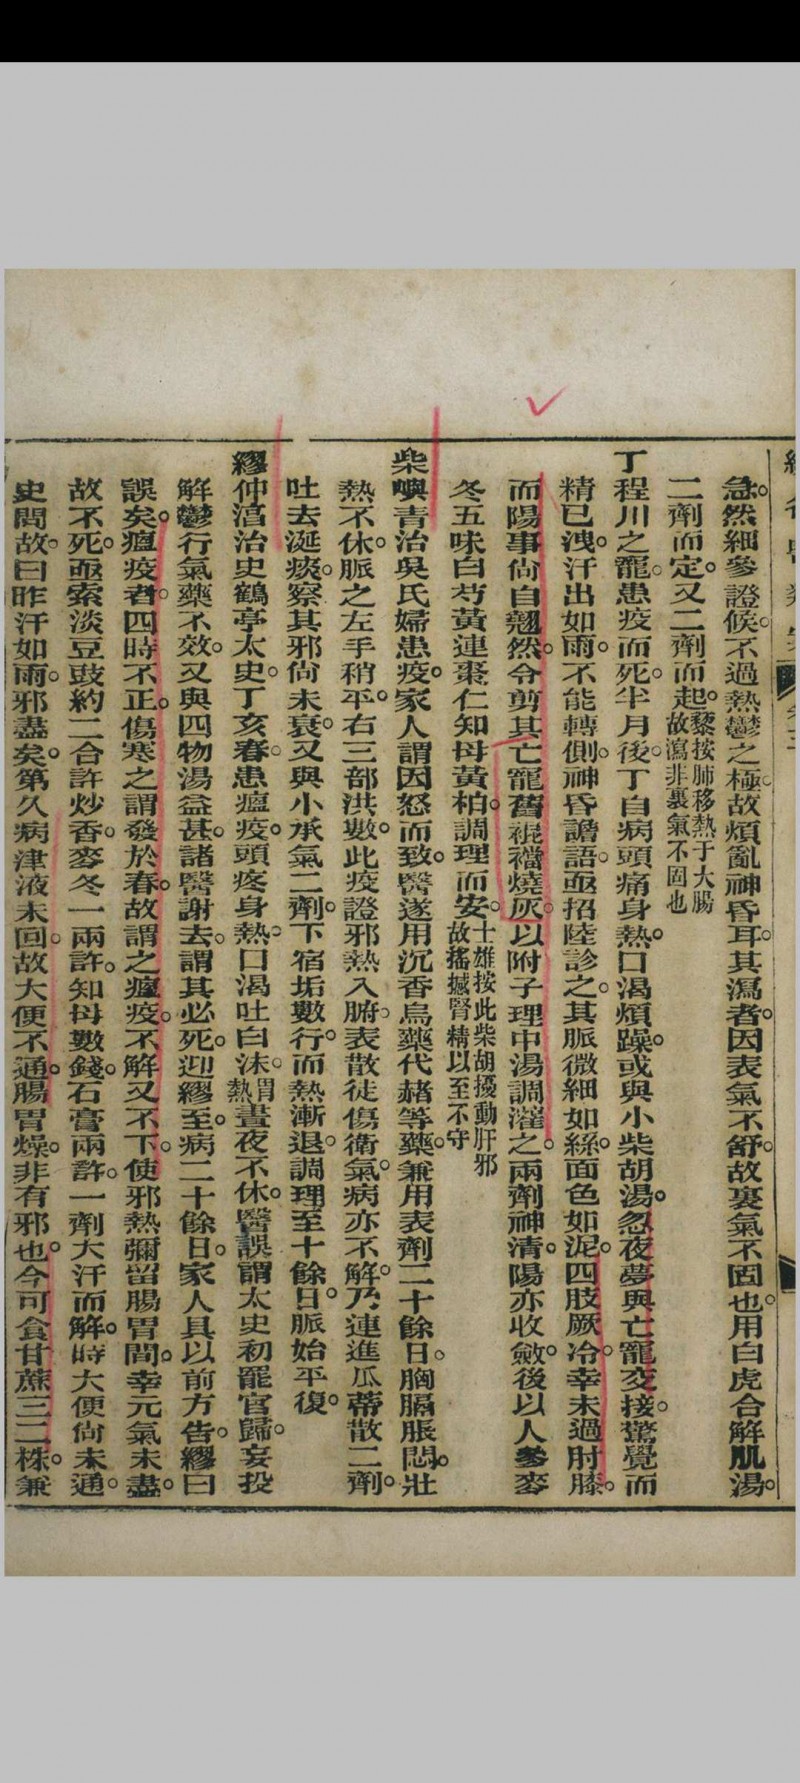 急。然細參證候。不過熱鬱之極。故煩亂神昏耳。其瀉者。因表氣不舒。故裏氣不固也。用白虎合解肌湯。
二劑而定。又二劑而起。藜按肺移熱于大腸
故瀉非裏氣不固也
丁程川之寵。患疫而死。半月後。丁自病頭痛身熱。口渴煩躁。或與小柴胡湯。忽夜夢與亡寵交接。驚覺而
精已洩。汗出如雨。不能轉側。神昏譫語。亟招陸診之。其脈微細如絲。面色如泥。四肢厥冷。幸未過肘膝。
而陽事尙自翹然。令剪其亡寵舊裩襠燒灰。以附子理中湯調灌之。兩劑神清。陽亦收斂。後以人參麥
冬五味白芍黃連棗仁知母黃柏。調理而安。士雄按此柴胡擾動肝邪
故搖撼腎精以至不守
柴嶼青治吳氏婦患疫。家人謂因怒而致。醫遂用沉香烏藥代赭等藥。兼用表劑二十餘日。胸膈脹悶。壯
熱不休。脈之左手稍平。右三部洪數。此疫證邪熱入腑。表散徒傷衛氣。病亦不解。乃連進瓜蒂散二劑。
吐去涎痰。察其邪尙未衰。又與小承氣二劑。下宿垢數行。而熱漸退。調理至十餘日。脈始平復。
繆仲淳治史鶴亭太史。丁亥春。患瘟疫。頭疼身熱。口渴吐白沫。晝夜不休。醫誤謂太史初罷官歸。妄投
解鬱行氣藥不效。又與四物湯益甚。諸醫謝去。謂其必死。迎繆至。病二十餘日。家人具以前方告。繆曰
誤矣。瘟疫者。四時不正。傷寒之謂。發於春。故謂之瘟疫。不解又不下。使邪熱彌留腸胃間。幸元氣未盡。
故不死。亟索淡豆豉約二合許炒香。麥冬一兩許。知母數錢。石膏兩許。一劑大汗而解。時大便尙未通。
史問故。曰昨汗如雨。邪盡矣。第久病津液未回。故大便不通。腸胃燥。非有邪也。今可食甘蔗三二株。兼